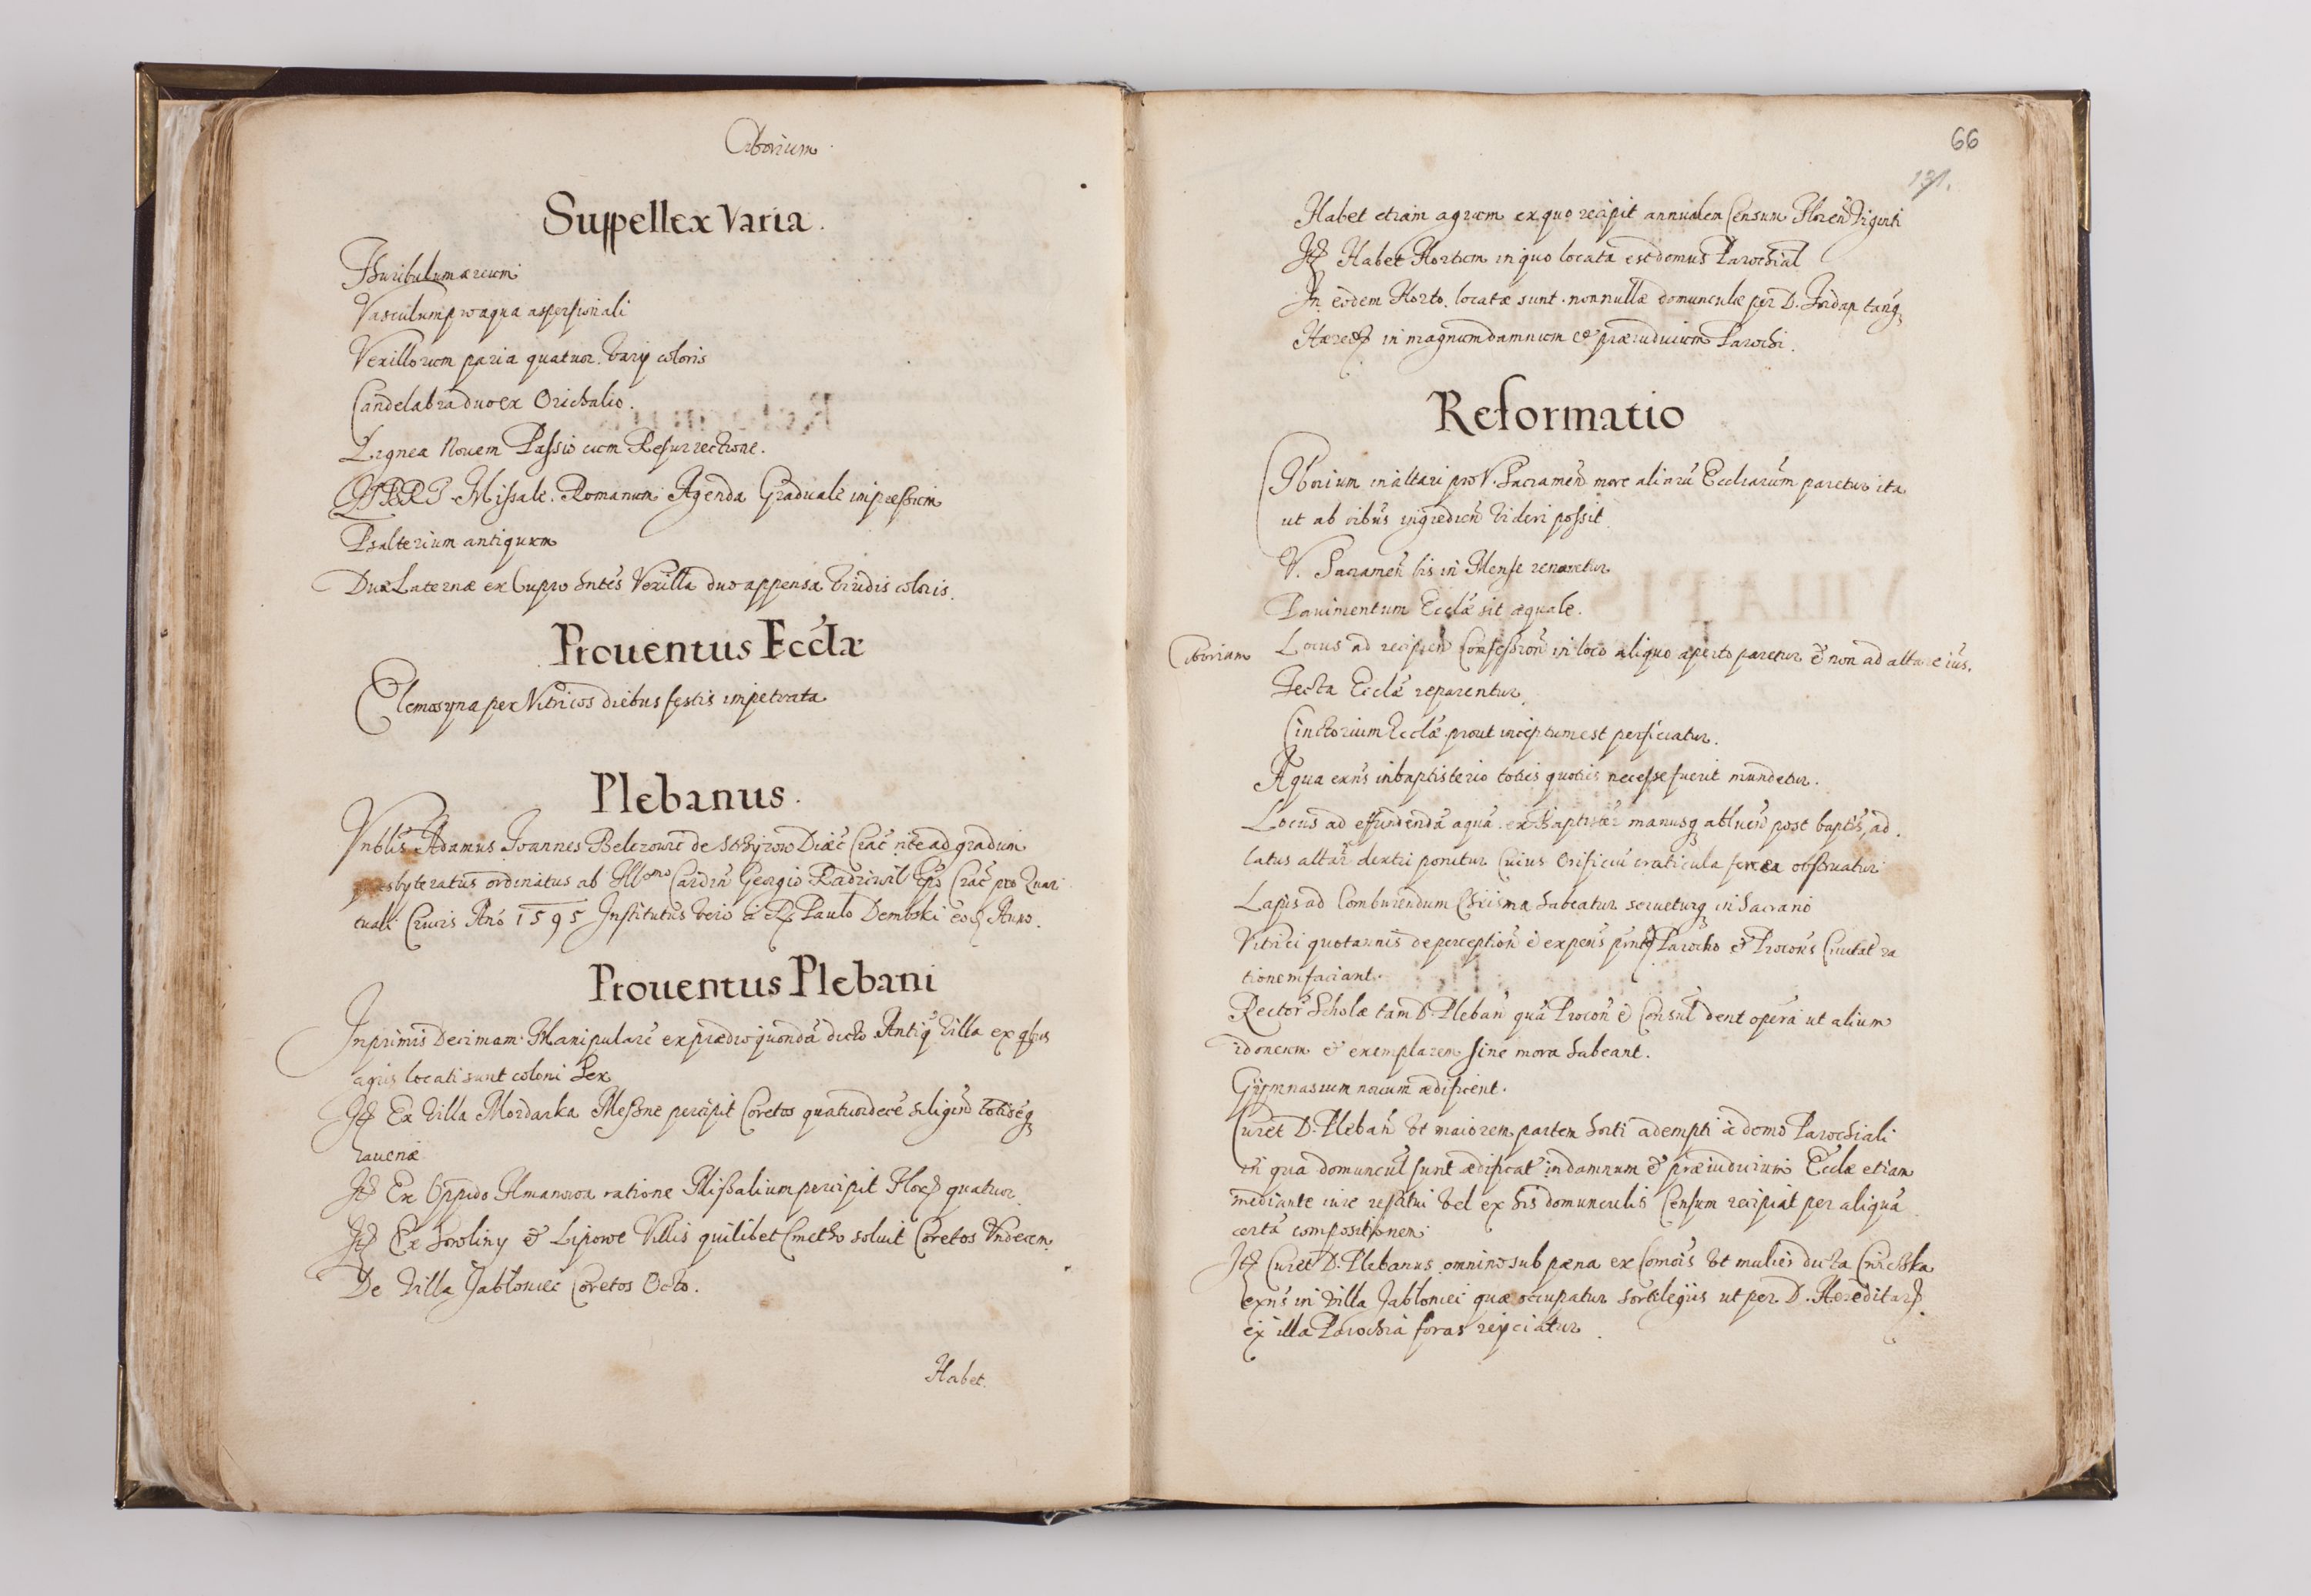 Ciborium
Suppellex Varia.
Thuribulum æreum
Vasculum pro aqua aspersionali
Vexillorum paria quatuor varij coloris
Candelabra duo ex Orichalio.
Lignea Novem Passio cum Resurrectione.
Missale Romanum Agenda Graduale impressum
Psalterium antiquum
Duæ Laternæ ex Cupro hntes Vexilla duo appensa viridis coloris.
Prouentus Ecclæ
Elemosyna per Vitricos diebus festis impetrata
Plebanus.
Vnblis Adamus Joannes Belczowic de Diæc Crac rite ad gradum
presbyteratus ordinatus ab Illmo Cardin Georgio Radziwil Epo Crac pro Quar
tuali Crucis Ano 1595 Institutus vero a R Paulo Dembski eod Anno.
Prouentus Plebani
Inprimis Decimam Manipulare ex prædio quonda dicto Antiq Villa ex qbus
agris locati sunt coloni Sex
Itē Ex Villa Mordarka Messne percipit Coretos quatuordecē siligin totideq
auenæ
Itē Ex Oppido Ilmanowa ratione Missalium percipit Flor quatuor
Itē Ex Sowliny & Lipowe Villis quilibet Cmetho soluit Coretos Vndecem
De Villa Jabloniec Coretos Octo.
Habet
66
131.
Habet etiam agrum ex quo recipit annualem Censum Floren Viginti
Itē Habet Hortum in quo locata est domus Parochial
In eodem Horto locatæ sunt nonnullæ domunculæ per D. Jordan tanq
Hæred in magnum damnum & præiudicium Parochi.
Reformatio
Ciborium in altari pro V. Sacramen more aliaru Eccliarum paretur ita
ut ab oibus ingredien videri possit
V. Sacramen bis in Mense renovetur
Pauimentum Ecclæ sit æquale.
Ciborium
Locus ad recipien Confession in loco aliquo aperto paretur & non ad altare ius.
Tecta Ecclæ reparentur
Cinctorium Ecclæ prout inceptum est perficiatur.
Aqua exns in baptisterio toties quoties necesse fuerit mundetur.
Locus ad effundendā aquā ex Baptister manusq abluen post baptis, ad
latus altar dextri ponetur Cuius Orificiū craticula ferrea obseruatur
Lapis ad Comburendum Chrisma habeatur serueturq in Sacrario
Vitrici quotannis de perception & expens pnte Parocho & Procons Ciuitat ra
tionem faciant.
Rector Scholæ tam D. Pleban quā Procon & Consul dent operā ut alium
idoneum & exemplarem sine mora habeant.
Gymnasium nouum ædificent.
Curet D. Pleban vt maiorem partem horti adempti à domo Parochiali
in qua domuncul sunt ædificat in damnum & præiudicium Ecclæ etiam
mediante iure restitui vel ex his domunculis Censum recipiat per aliquā
certā compositionem
Itē Curet D. Plebanus omnino sub pæna ex Comois vt mulier dicta
exns in villa Jabloniei quæ occupatur sortilegijs ut per D. Hereditar
ex illa Parochia foras reijciatur.